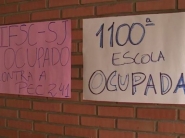 IFSC-SJ
OCUPADO
CONTRA A
PEC 241
1100ª
ESCOLA
OCUPADA